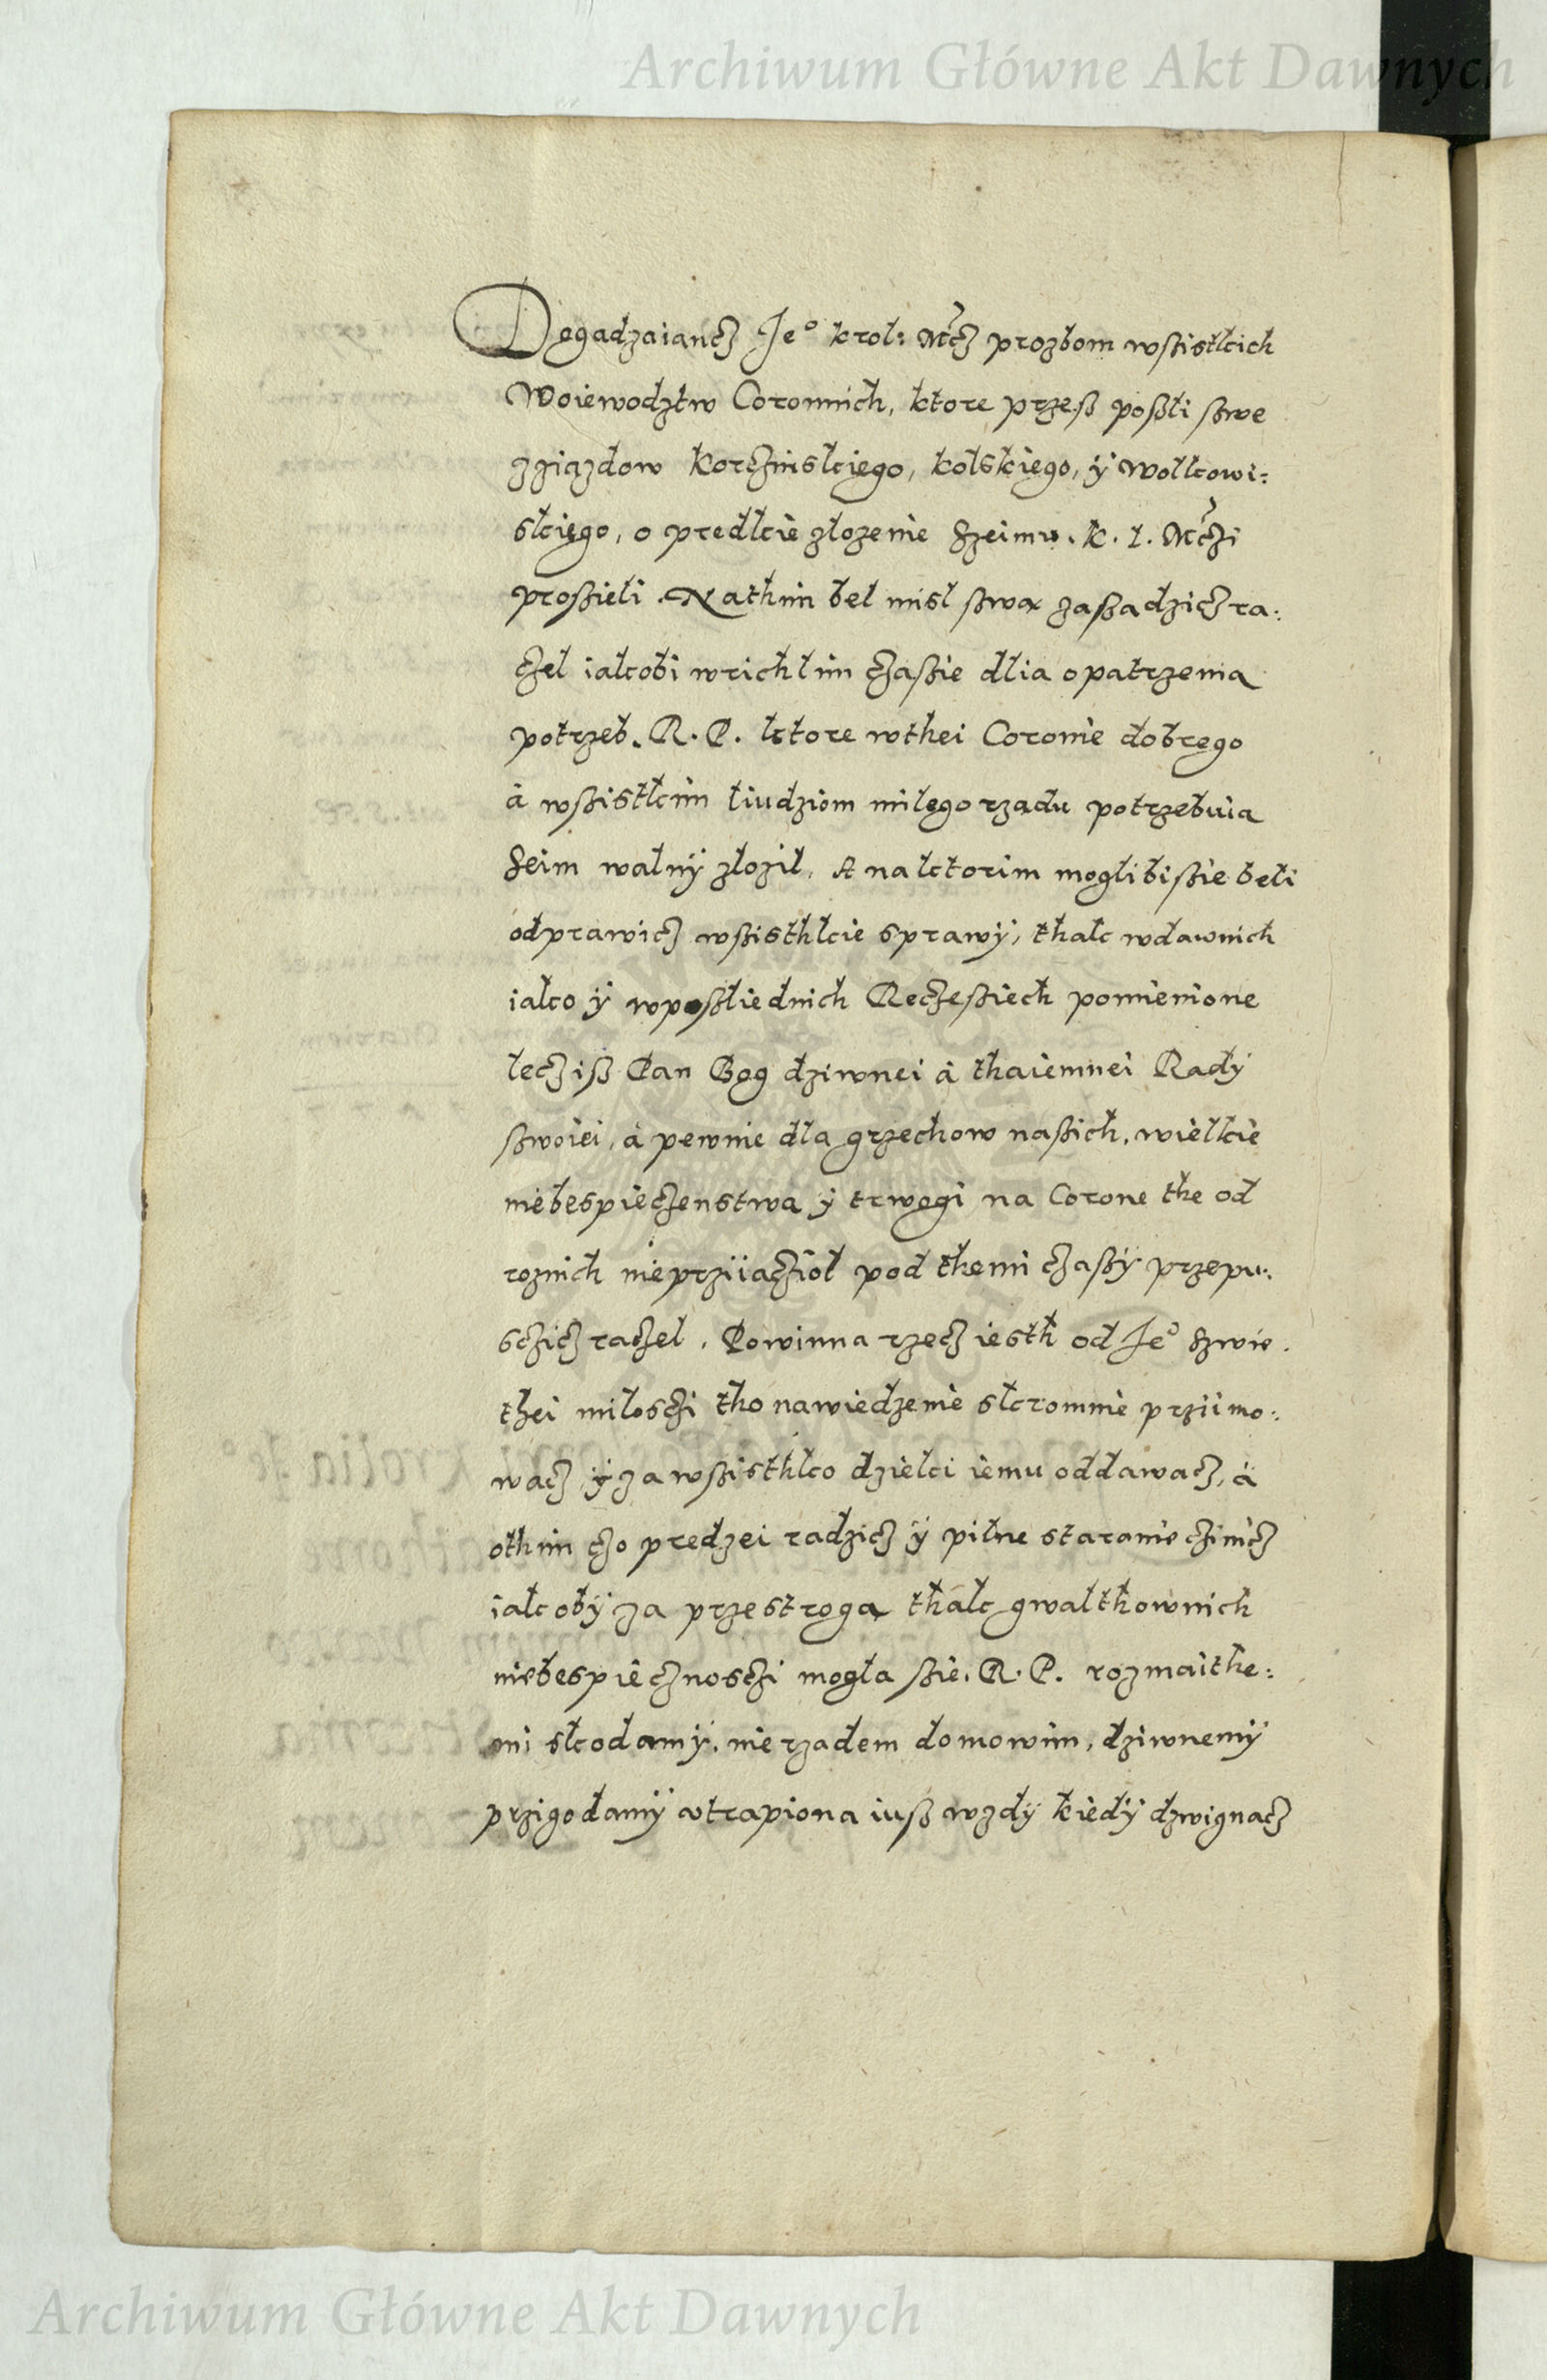 Archiwum Główne Akt Dawnych
Dogadzaiancz Je° krol: Mcz prozbom wßistkich
Woiewodztw Coronnich, ktore przeß poßli ßwe
zziazdow Korczinskiego, kolskiego, ÿ Wolkowi:
skięgo, o predkie złozenie Szeimu. K. J. Mczi
proßieli. Nathim bel misl ßwa zaßadzicz ra:
czel iakobi wrichlim czaßie dlia opatrzenia
potrzeb. R. P. ktore wthei Coronie dobrego
à wßistkim liudziom milego rzadu potrzebuia
Seim walnÿ złozil, A naktorim moglibißie beli
odprawicz wßisthkie sprawÿ, thak wdawnich
iako ÿ wpoßliednich Reczeßiech pomienione
lecz iß Pan Bog dziwnei à thaiemnei Radÿ
ßwoiei, à pewnie dla grzechow naßich, wielkie
niebespieczenstwa ÿ trwogi na Corone the od
roznich nieprziiacziol pod themi czaßÿ przepu:
sczicz raczel. Powinna rzecz iesth od Je° Szwie:
thei milosczi tho nawiedzenie skromnie prziimo:
wacz ÿ za wßisthko dzieki iemu oddawacz, à
othim czo predzei radzicz ÿ pilne staranie czinicz
iakobÿ za przestroga thak gwalthownich
niebespiecznosczi mogla ßie. R. P. rozmaithe:
mi skodamÿ, nierzadem domowim, dziwnemÿ
przigodamÿ utrapiona iuß wzdÿ kiedÿ dzwignacz
Archiwum Główne Akt Dawnych